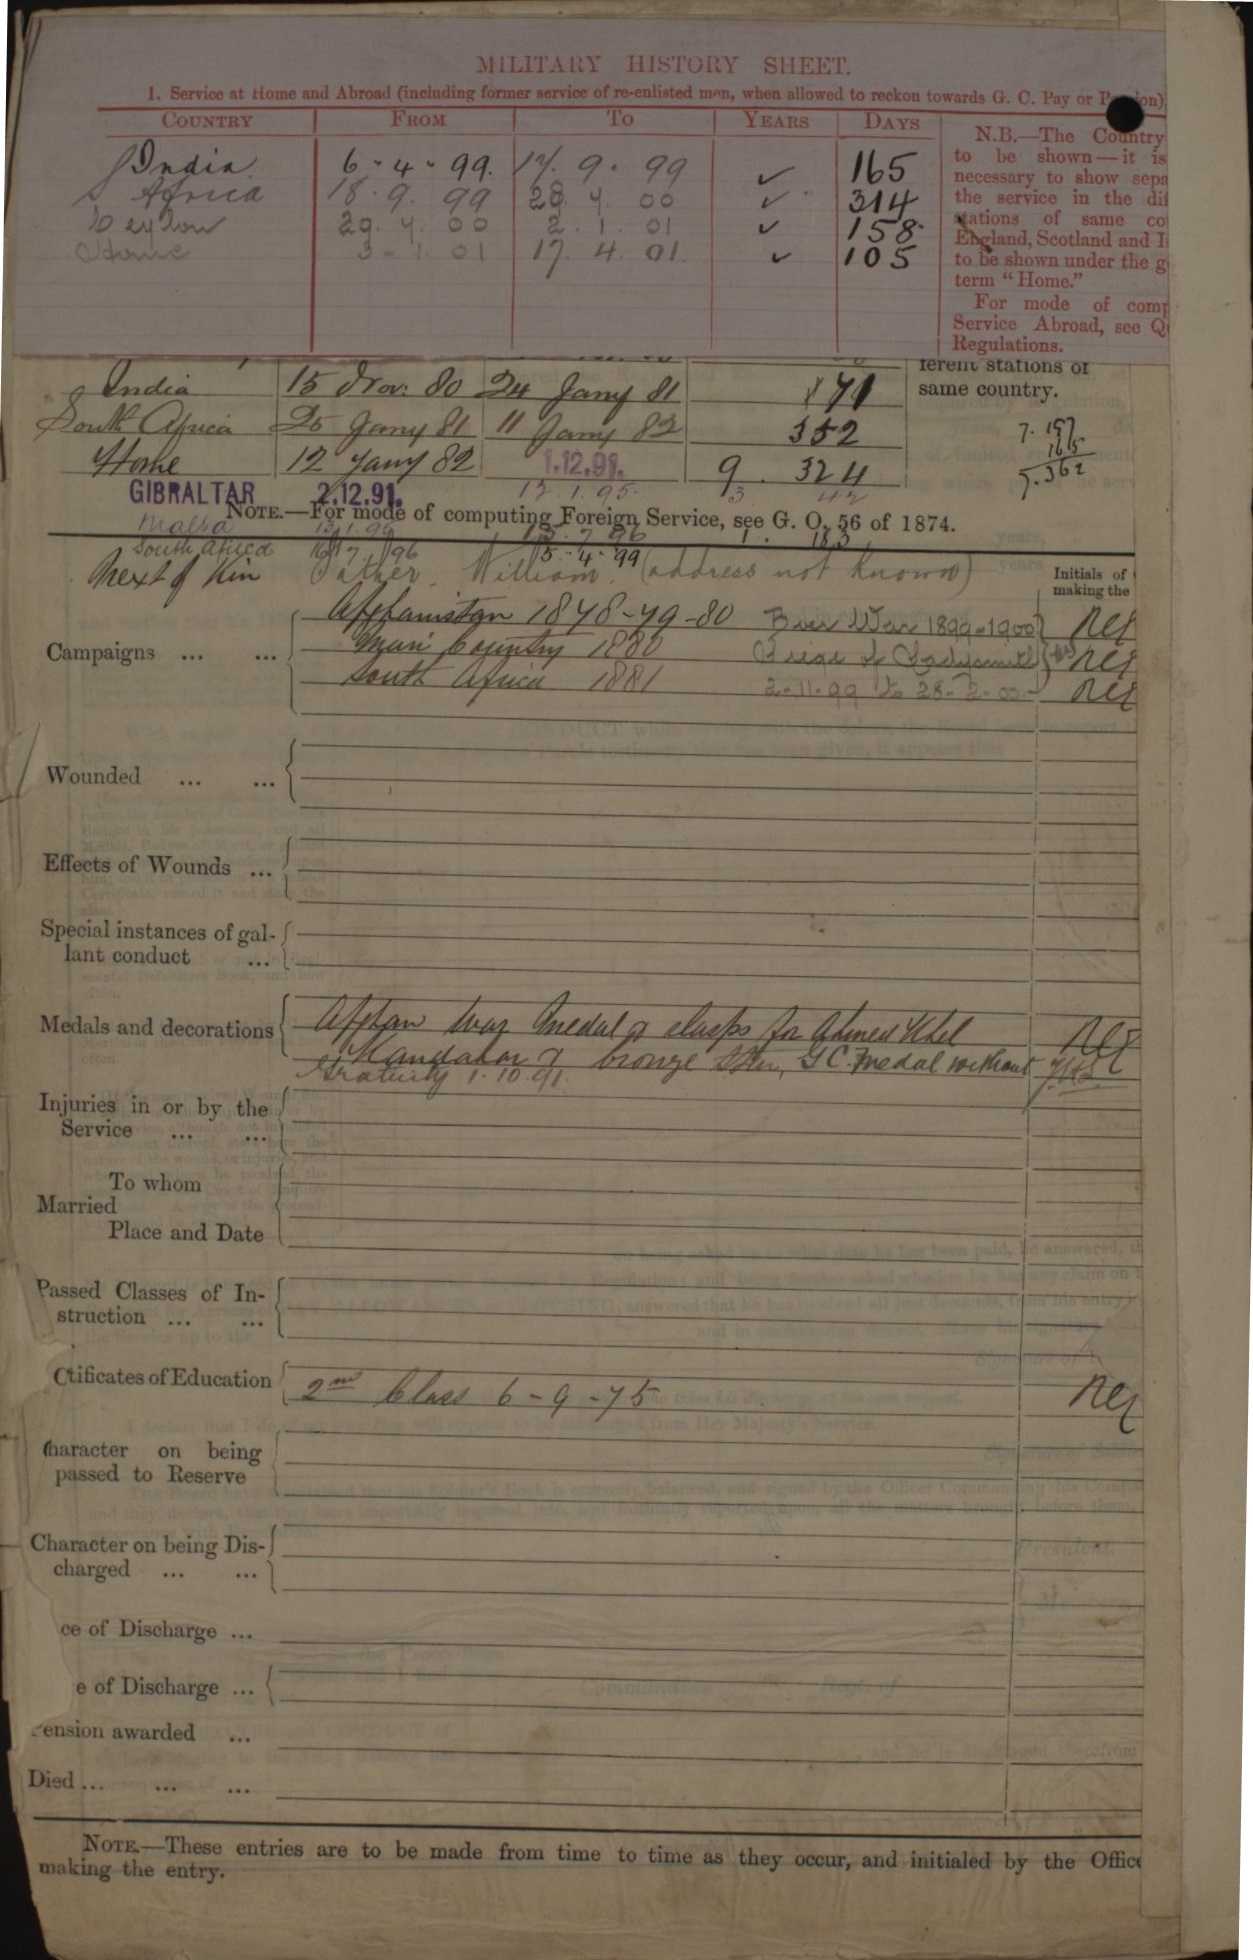 MILITARY HISTORY SHEET.
1. Service at Home and Abroad (including former service of re-enlisted men, when allowed to reckon towards G. C. Pay or Pension)
COUNTRY FROM TO YEARS DAYS
India 6 - 4 - 99. 17. 9. 99 ✓ 165
S Africa 18. 9. 99 28. 7. 00 ✓ 314
Ceylon 29. 7. 00 2. 1. 01 ✓ 158
Home 3 - 1. 01 17. 4. 01. ✓ 105
N.B.—The Country
to be shown—it is
necessary to show sepa
the service in the dif
stations of same co
England, Scotland and I
to be shown under the g
term "Home."
For mode of comp
Service Abroad, see Q
Regulations.
ferent stations of
same country.
India 15 Nov: 80 24 Jany 81 71
South Africa 25 Jany 81 11 Jany 82 352
Home 12 Jany 82 1.12.91. 9. 324
7. 157
5. 362
GIBRALTAR 2.12.91. 12. 1. 95. 3 42
NOTE.—For mode of computing Foreign Service, see G. O. 56 of 1874.
Malta 13. 1. 95 13. 7. 96 1. 183
South Africa 7 96 5. 4. 99
Next of Kin Father. William. (address not known)
Initials of
making the
Campaigns ... ...
Afghanistan 1878-79-80 Boer War 1899-1900
Mari Country 1880 Siege of Ladysmith
South Africa 1881 2-11-99 to 28-2-00
Wounded ... ...
Effects of Wounds ...
Special instances of gal-
lant conduct ...
Medals and decorations
Afghan War Medal & clasps for Ahmed Khel
Kandahar & bronze Star, G C. Medal without
Gratuity 1. 10. 91.
Injuries in or by the
Service ... ...
To whom
Married
Place and Date
Passed Classes of In-
struction ... ...
Ctificates of Education
2nd Class 6 - 9 - 75
haracter on being
passed to Reserve
Character on being Dis-
charged ... ...
ce of Discharge ...
e of Discharge ...
ension awarded ...
Died ... ... ...
NOTE.—These entries are to be made from time to time as they occur, and initialed by the Office
making the entry.